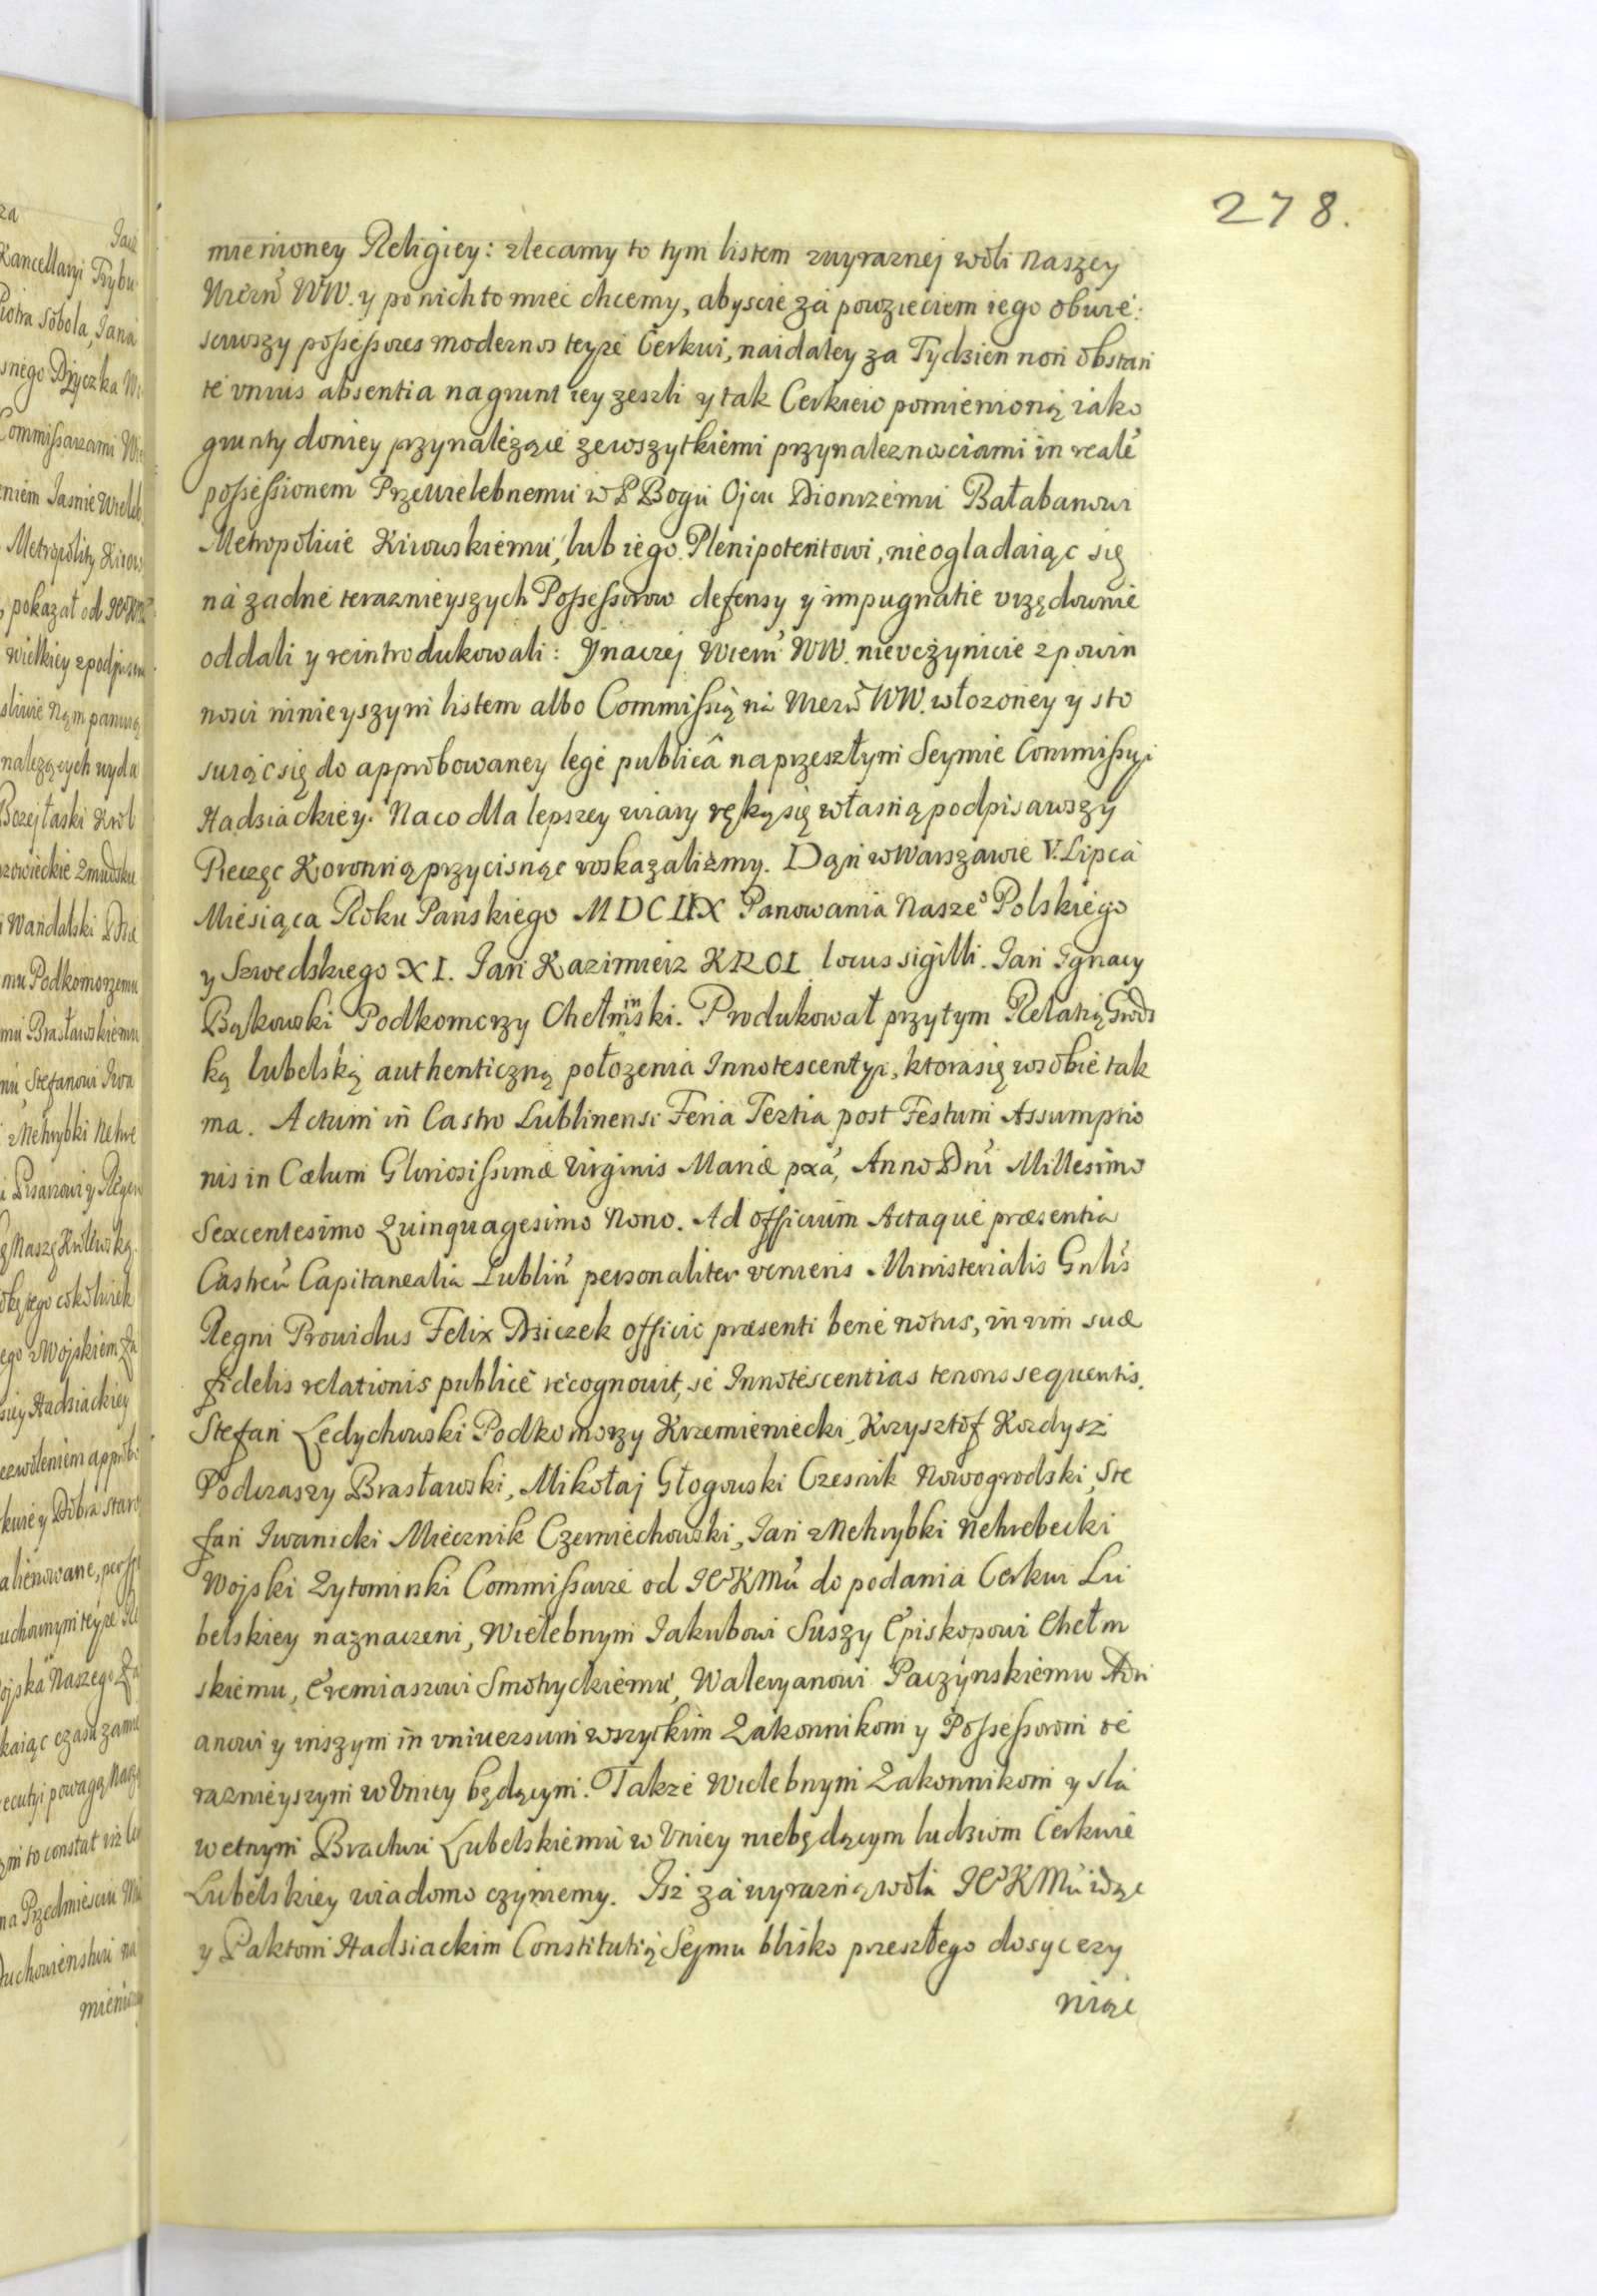 278.
mienioney Religiey: zlecamy to tym listem zwyraznej woli naszey
WW. y po nich to miec chcemy, abyscie za powzieciem iego obwie:
sciwszy possessores modernos teyze Cerkwi, naidaley za Tydzien non obstan
te vnius absentia na grunt iey zeszli y tak Cerkiew pomienioną iako
grunty do niey przynależące ze wszytkiemi przynaleznosciami in reale
possessionem Przewielebnemu w P Bogu Ojcu Dionizemu Bałabanowi
Metropolicie Kiiowskiemu, lub iego Plenipotentowi, nieogladaiąc się
na żadne teraznieyszych Possessorow defensy y impugnatie vrzędownie
oddali y reintrodukowali: Ynaczej WW. nievczynicie z powin
nosci ninieyszym listem albo Commissią na WW. włozoney y sto
suiąc się do approbowaney lege publicâ na przeszłym Seymie Commissyi
Hadziackiey. Na co dla lepszey wiary ręką się własną podpisawszy
Pieczęc Koronną przycisnąc roskazalismy. Dan w Warszawie V. Lipca
Miesiąca Roku Panskiego MDCLIX Panowania Nasze° Polskiego
y Szwedskiego XI. Jan Kazimierz KROL locus sigilli. Jan Ignacy
Bąkowski Podkomorzy Chełminski. Produkował przytym Relatią Grodz
ką lubelską authentyczną położenia Innotescentyi, ktora się w sobie tak
ma. Actum in Castro Lublinensi Feria Tertia post Festum Assumptio
nis in Cælum Gloriosissimæ Virginis Mariæ pxa, Anno Dni Millesimo
Sexcentesimo Quinquagesimo Nono. Ad officium Actaque præsentia
Castren Capitanealia Lublin personaliter veniens Ministerialis Gnlis
Regni Prouidus Felix Dziczek officio præsenti bene notus, in vim suæ
fidelis relationis publice recognouit, se Innotescentias tenoris sequentis.
Stefan Ledychowski Podkomorzy Krzemieniecki, Krzysztof Kordysz
Podczaszy Brasławski, Mikołaj Głogowski Czesnik Nowogrodski, Ste
fan Iwanicki Miecznik Czerniechowski, Jan z Nehrybki Nehrebecki
Wojski Zytominski Commissarze od JE°KMci do podania Cerkwi Lu
belskiey naznaczeni, Wielebnym Jakubowi Suszy Episkopowi Chełm
skiemu, Eremiaszowi Smotryckiemu, Waleryanowi Paczynskiemu Adri
anowi y inszym in vniuersum wszytkim Zakonnikom y Possessorom te
raznieyszym w Vniey będącym. Takze Wielebnym Zakonnikom y sła
wetnym Bractwu Lubelskiemu w Vniey niebędącym ludziom Cerkwie
Lubelskiey wiadomo czyniemy. Isz za wyrazną wola JE°KMci idąc
y Paktom Hadsiackim Constitutią Sejmu blisko przeszłego dosyc czy
niąc